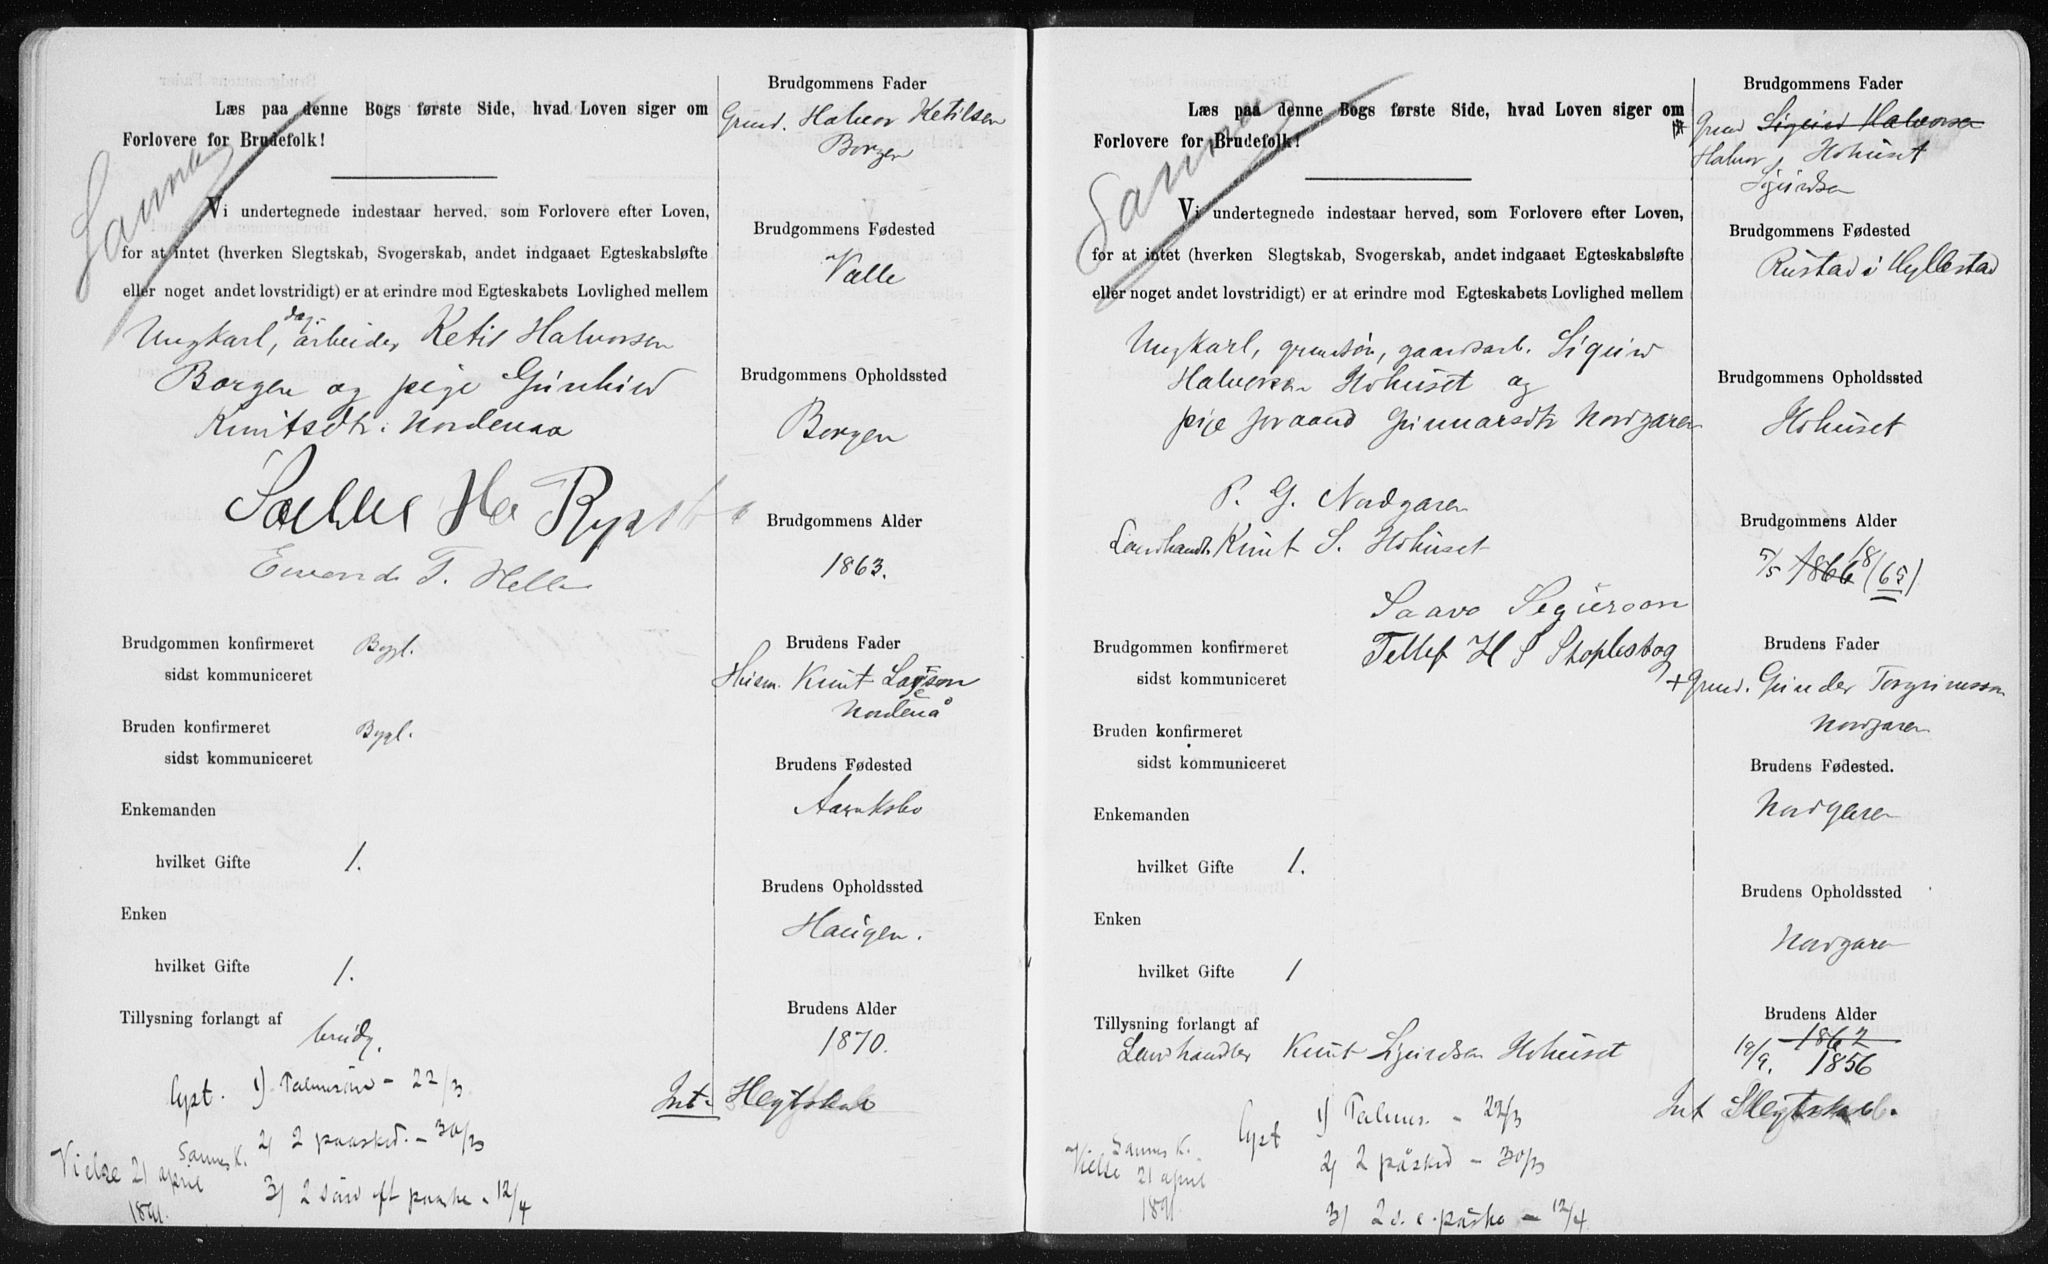 Læs paa denne Bogs første Side, hvad Loven siger om
Forlovere for Brudefolk!
Sannes
Vi undertegnede indestaar herved, som Forlovere efter Loven,
for at intet (hverken Slegtskab, Svogerskab, andet indgaaet Egteskabsløfte
eller noget andet lovstridigt) er at erindre mod Egteskabets Lovlighed mellem
Ungkarl, dag. arbeider Ketil Halvorsen
Borgen og pige Gunhild
Knutsdtr. Nordenaa
Eivend T. Helle
Brudgommen konfirmeret Bygl.
sidst kommuniceret
Bruden konfirmeret Bygl.
sidst kommuniceret
Enkemanden
hvilket Gifte 1.
Enken
hvilket Gifte 1.
Tillysning forlangt af brudg.
lyst. 1) Palmesøn – 22/3
2) 2 paasked. – 30/3
3) 2 sønd eft paaske – 12/4
Sannes K.
Vielse 21 april
1891.
Brudgommens Fader
Grund. Halvor Ketilsen
Borgen
Brudgommens Fødested
Valle
Brudgommens Opholdssted
Borgen
Brudgommens Alder
1863.
Brudens Fader
Husm. Knut
Nordenå
Brudens Fødested
Aaraksbo
Brudens Opholdssted
Haugen.
Brudens Alder
1870.
Int. Slegtskab
Læs paa denne Bogs første Side, hvad Loven siger om
Forlovere for Brudefolk!
Sannes
Vi undertegnede indestaar herved, som Forlovere efter Loven,
for at intet (hverken Slegtskab, Svogerskab, andet indgaaet Egteskabsløfte
eller noget andet lovstridigt) er at erindre mod Egteskabets Lovlighed mellem
Ungkarl, grundsøn, gaardsarb. Sigurd
Halvorsen Hohuset og
pige Joraand Gunnarsdtr Nordgaren
P. G. Nordgaren
Landhandl. Knut S. Hohuset
Tellef H S Stoplesbog
Brudgommen konfirmeret
sidst kommuniceret
Bruden konfirmeret
sidst kommuniceret
Enkemanden
hvilket Gifte 1.
Enken
hvilket Gifte 1
Tillysning forlangt af
Landhandler Knut Sigurdsen Hohuset
lyst 1) Palmes. – 22/3
2) 2 påsked – 30/3
3) 2 s. e. påske – 12/4
Sannes K.
Vielse 21 april
1891.
Brudgommens Fader
Grund Sigurd Halvorsen
Halvor Hohuset
Sigurdsen
Brudgommens Fødested
Rustad i Hyllestad
Brudgommens Opholdssted
Hohuset
Brudgommens Alder
5/5 1866 18(65)
Brudens Fader
+ Grund. Gunder Torgrimsson
Nordgaren
Brudens Fødested.
Nordgaren
Brudens Opholdssted
Nordgaren
Brudens Alder
1862
19/9. 1856
Int Slegtskab.